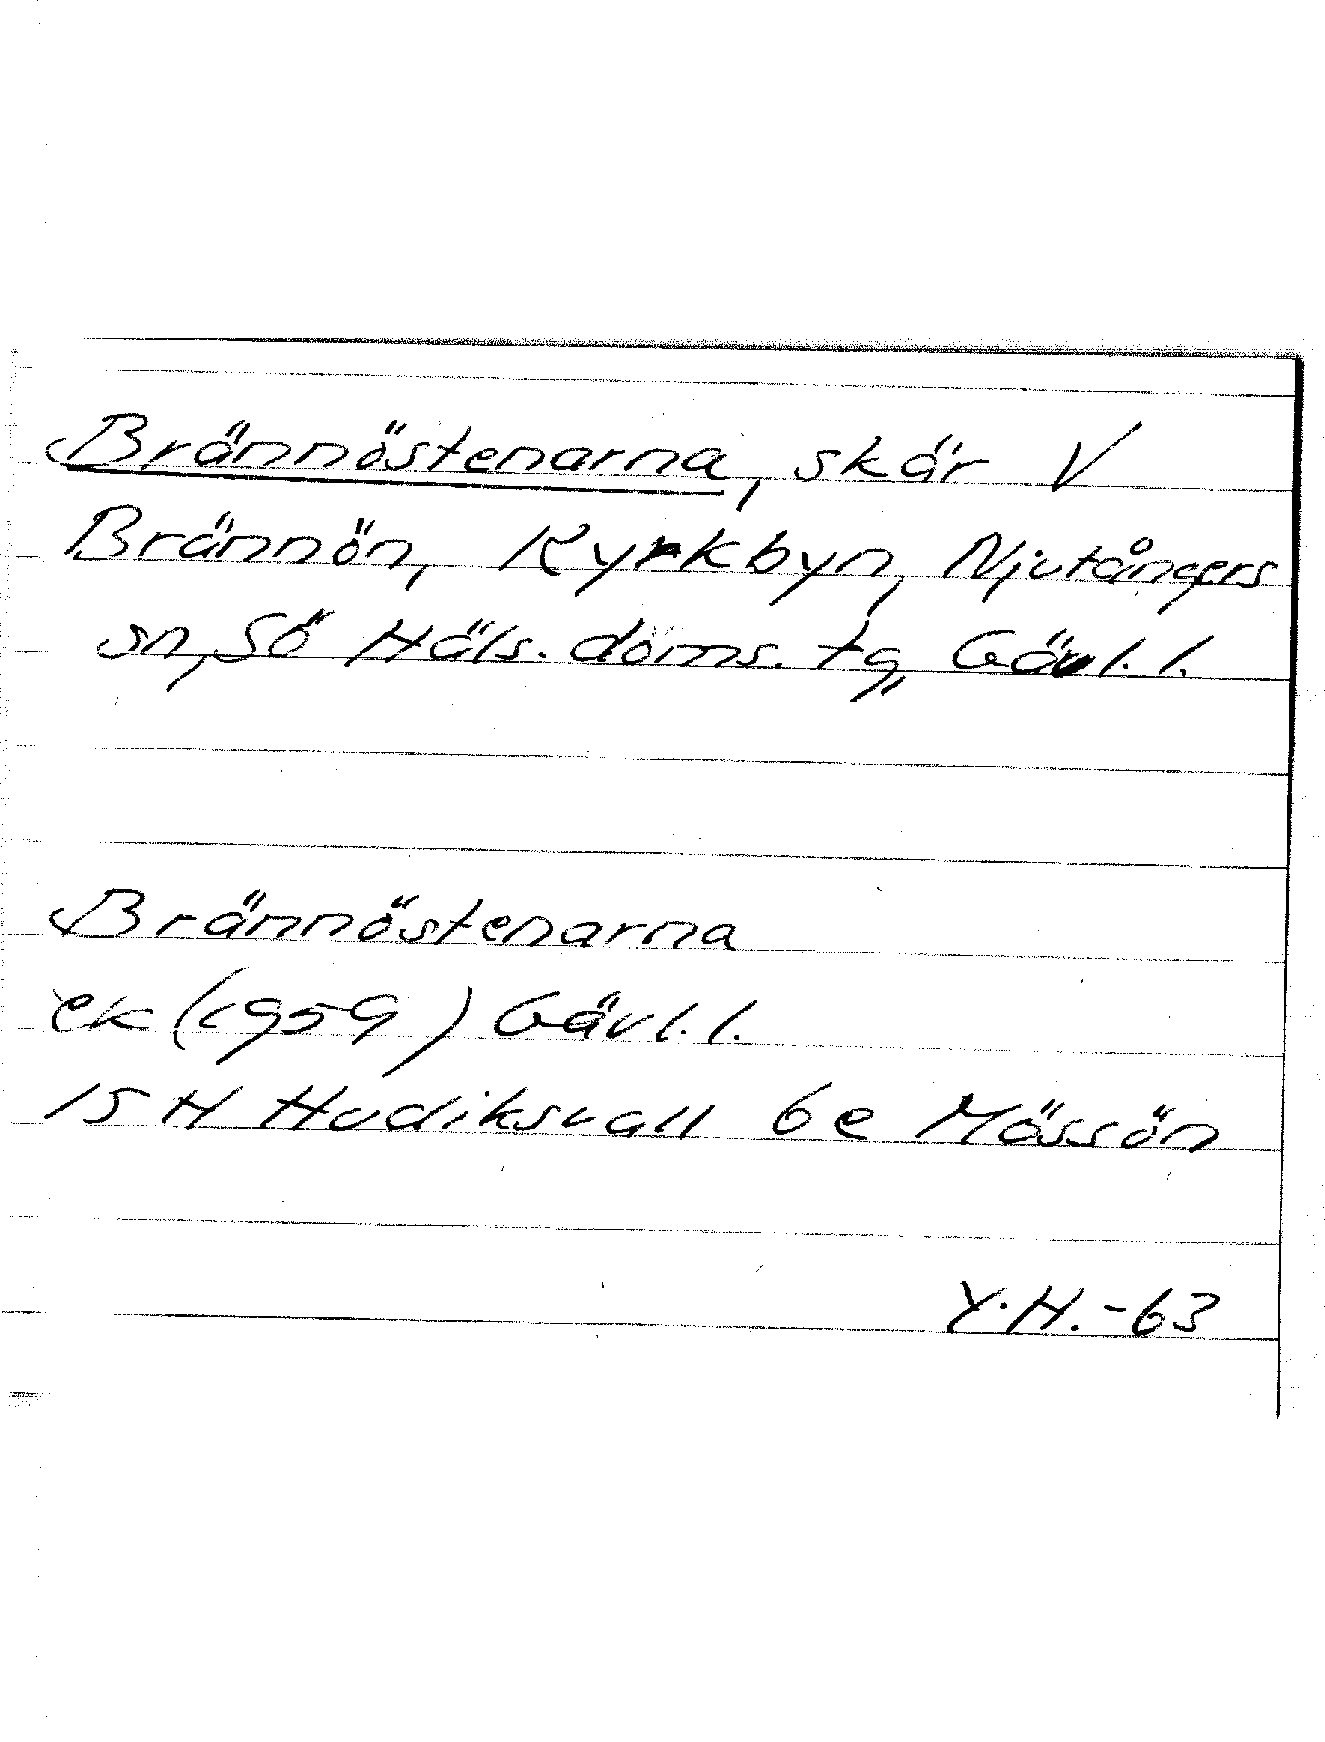 Brännöstenarna, skär V
Brännön, Kyrkbyn, Njutångers
sn, Sö Häls. doms. tg, Gävl. l.
Brännöstenarna
ek (1959) Gävl. l.
15 H Hudiksvall 6e Mössön
Y.H. -63